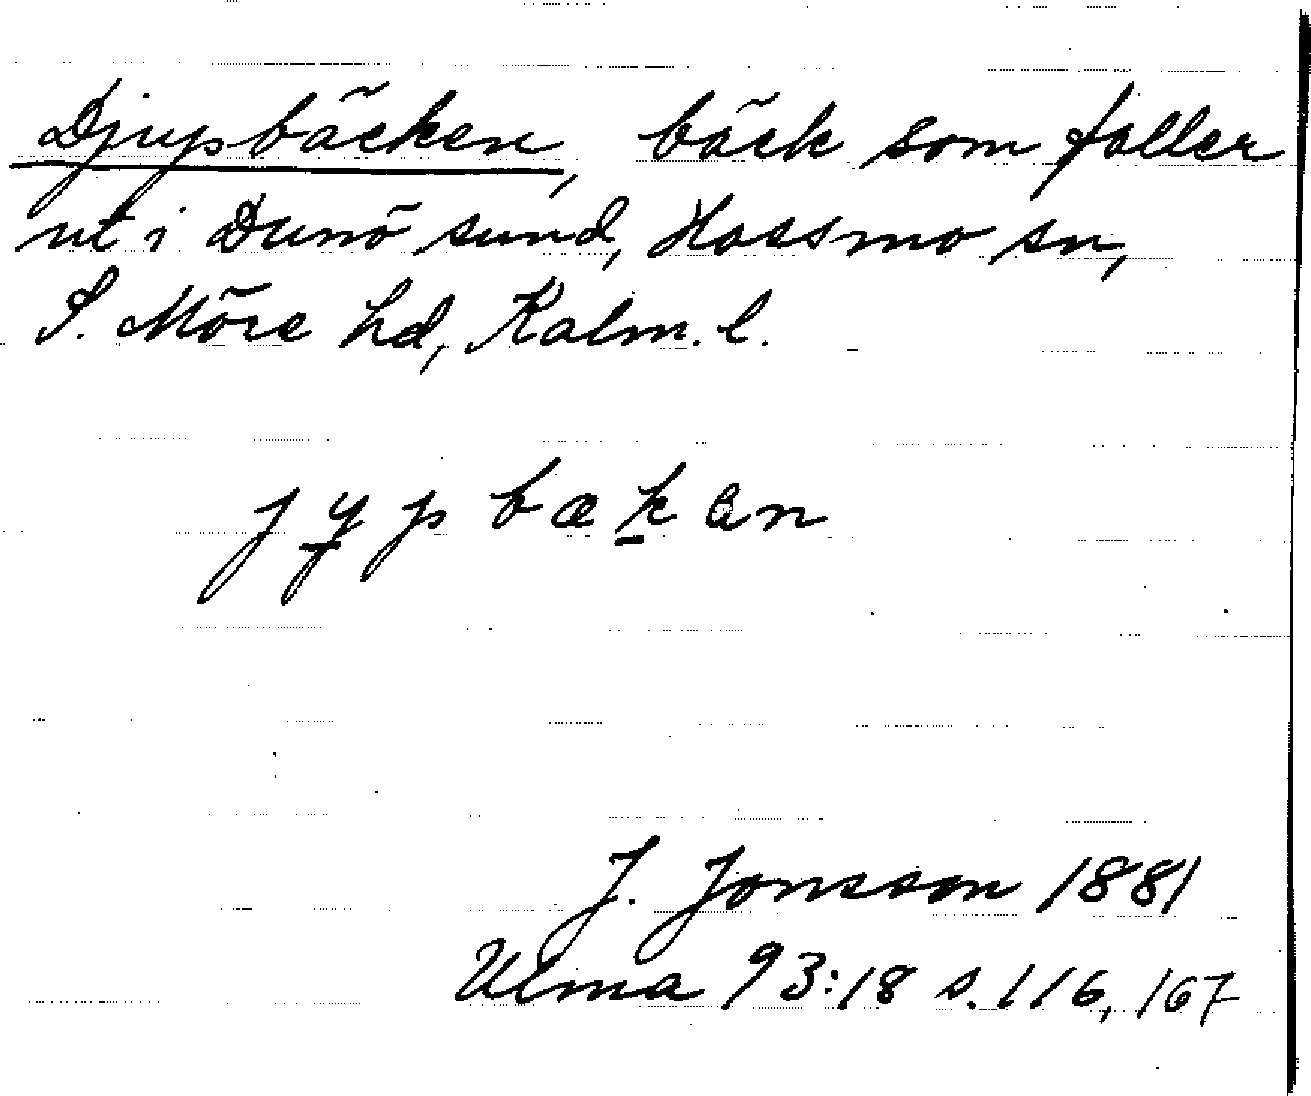 Djupbäcken, bäck som faller
ut i Dunö sund, Hossmo sn,
S. Möre hd, Kalm. l.
jypbækan
J. Jonsson 1881
Ulma 93:18 s. 116, 167